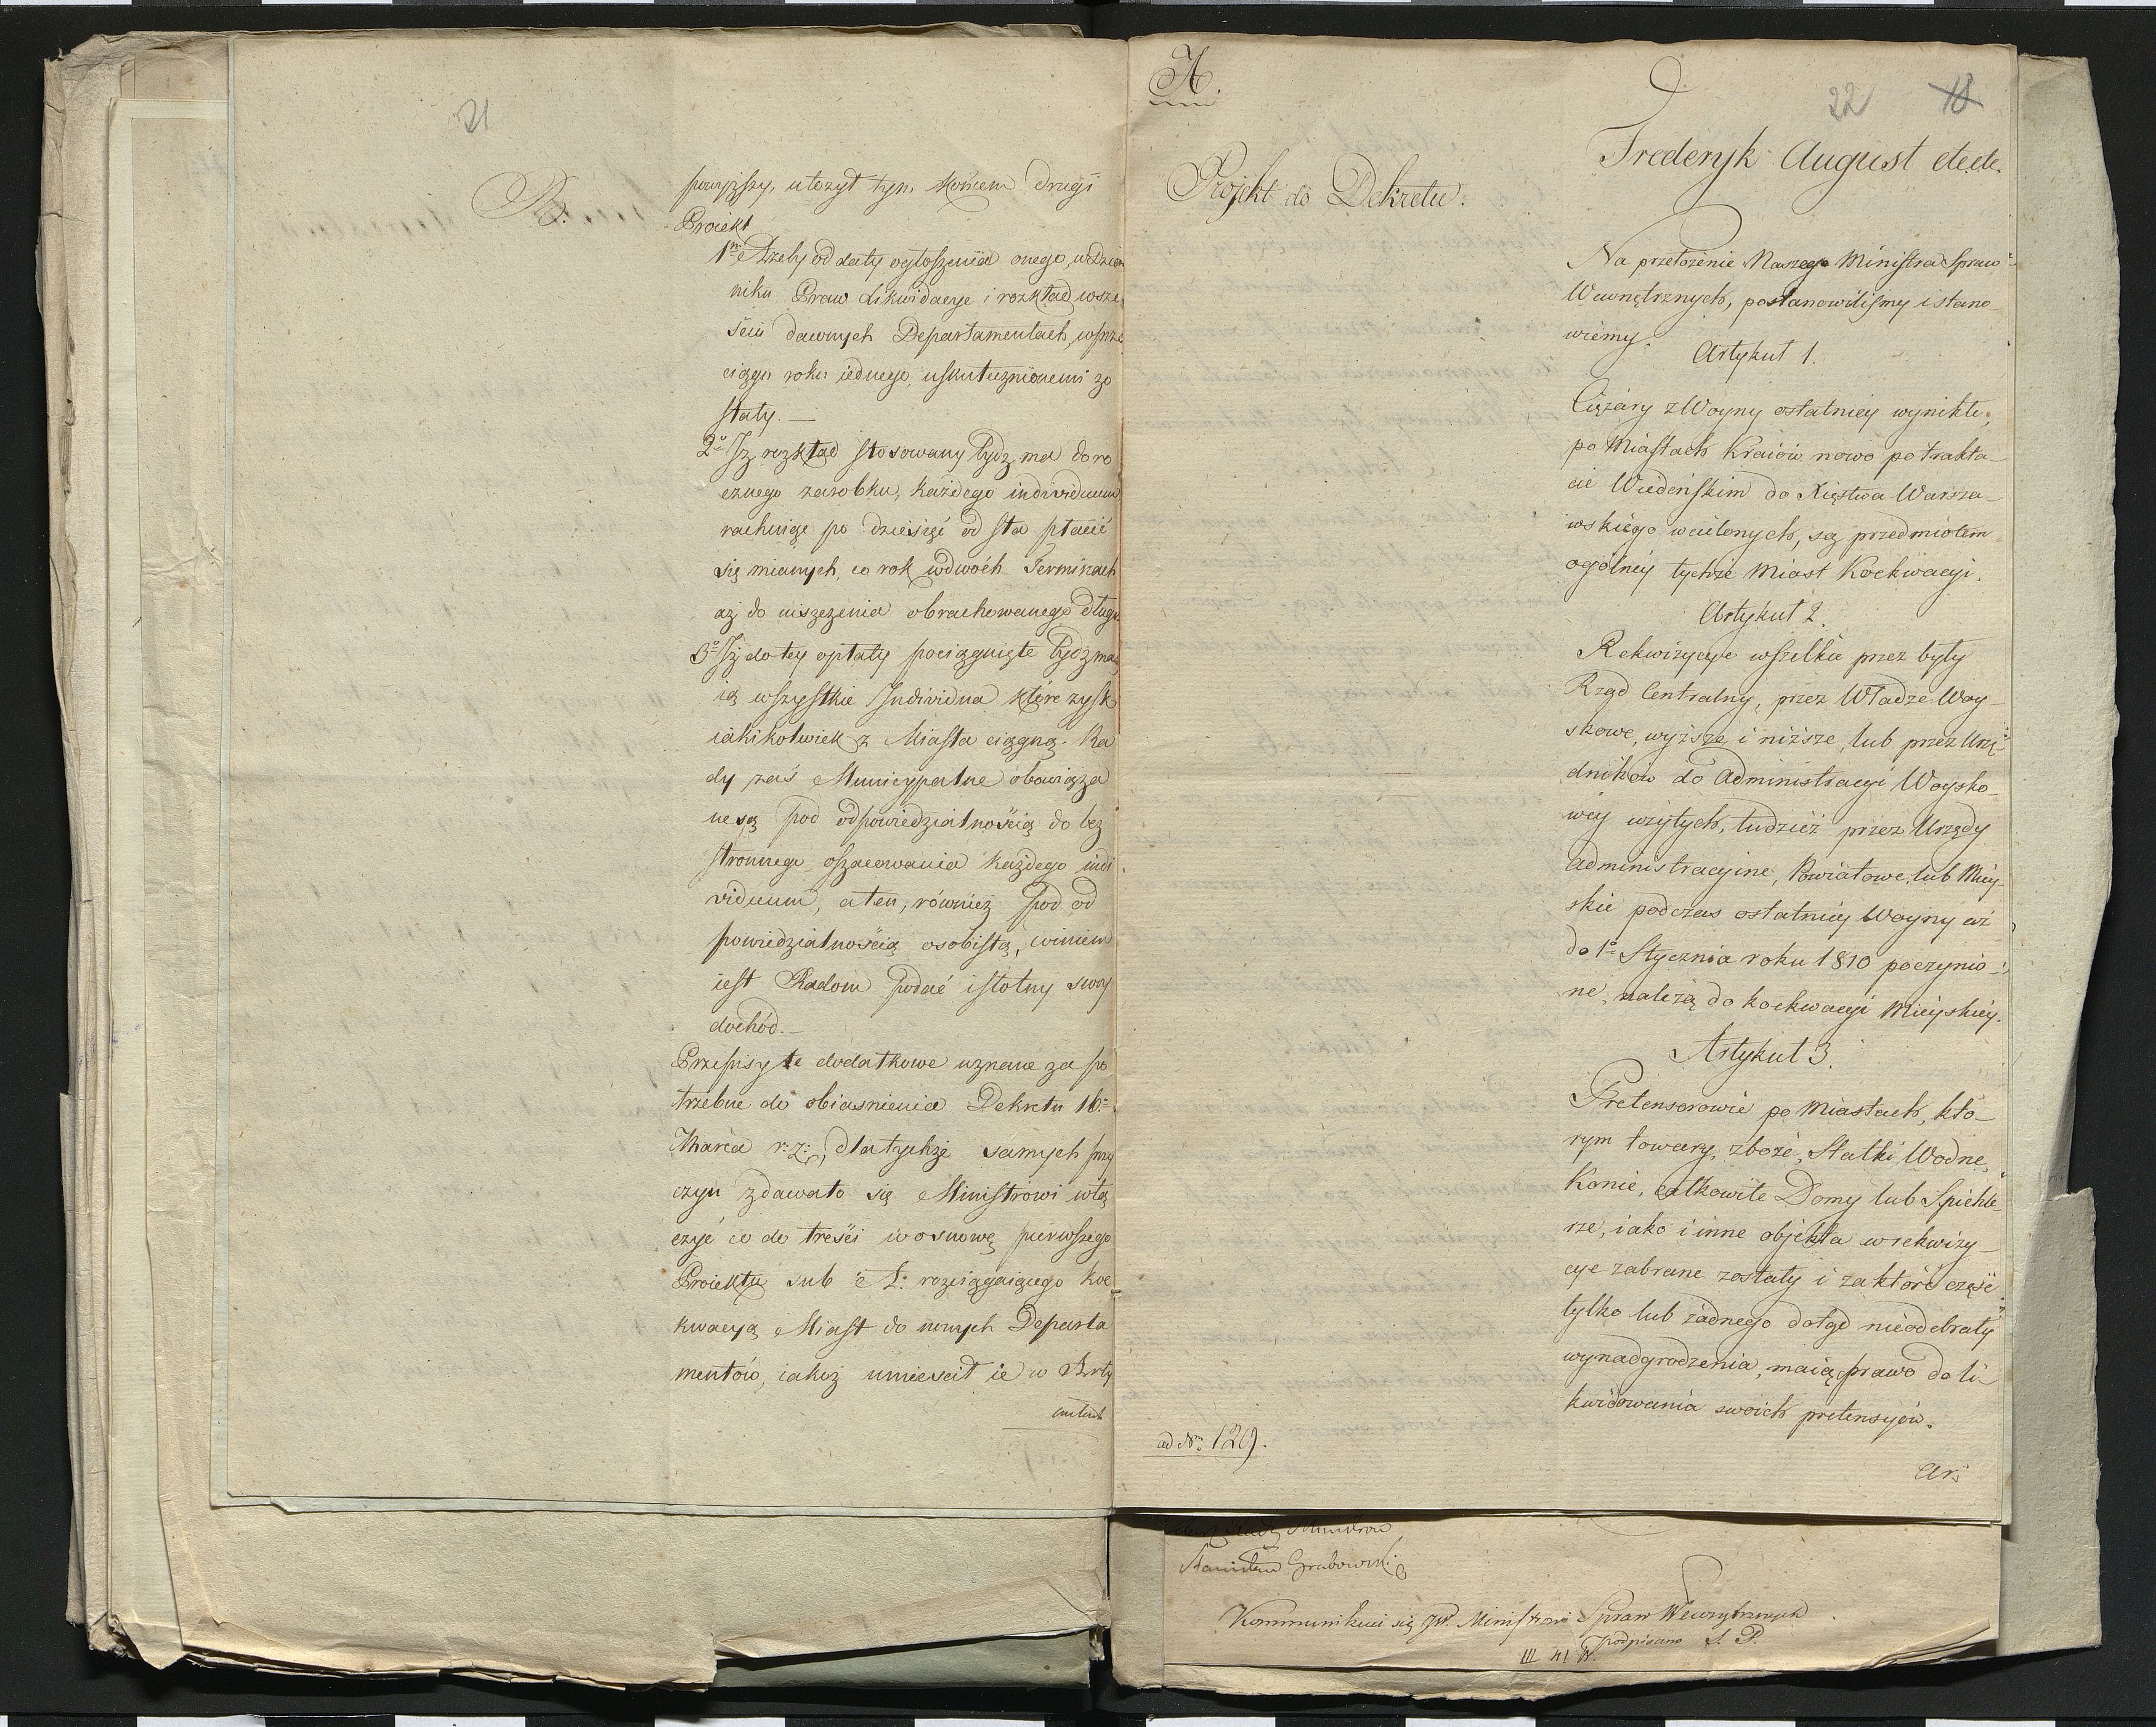 21
B.
powyższy, ułożył tym końcem drugi
Proiekt
1mo Ażeby od daty ogłoszenia onego, w Dzien
niku Praw Likwidacye i rozkład w sze
ściu dawnych Departamentach, w prze
ciągu roku iednego, uskutecznionemi zo
stały. —
2o Iż rozkład stosowany bydź ma do ro
cznego zarobku, każdego individuum
rachuiąc po dziesięć od sta płacić
się mianych, co rok w dwóch Terminach
aż do uiszczenia obrachowanego długu
3o Iż do tey opłaty pociągnięte bydź ma
ią wszystkie Individua które zysk
iakikolwiek z Miasta ciągną. Ra
dy zaś Municypalne obowiąza
ne są pod odpowiedzialnością do bez
stronnego oszacowania każdego indi
viduum, a ten, również pod od
powiedzialnością osobistą, winien
iest Radom podać istotny swoy
dochód. —
Przepisy te dodatkowe uznane za po
trzebne do obiasnienia Dekretu 16o
Marca r: z:, dla tychże samych przy
czyn zdawało się Ministrowi włą
czyć co do treści w osnowę pierwszego
Proiektu sub A: rozciągaiącego koe
kwacyą Miast do nowych Departa
mentów, iakoż umieścił ie w Arty
kułach
A.
22 18
Projekt do Dekretu.
Frederyk August etc. etc.
Na przełożenie Naszego Ministra Spraw
Wewnętrznych, postanowiliśmy i stano
wiemy.
Artykuł 1.
Ciężary z Woyny ostatniey wynikłe,
po Miastach Kraiów nowo po trakta-
cie Wiedeńskim do Xięstwa Warsza-
wskiego wcielonych, są przedmiotem
ogólney tychże Miast Koekwacyi.
Artykuł 2.
Rekwizycye wszelkie przez były
Rząd Centralny, przez Władze Woy-
skowe, wyższe i niższe, lub przez Urzę-
dników do Administracyi Woysko-
wey użytych, tudzież przez Urzędy
administracyine, Powiatowe, lub Miey-
skie podczas ostatniey Woyny aż
do 1o Stycznia roku 1810 poczynio-
ne, należą do koekwacyi Mieyskiey.
Artykuł 3.
Pretensorowie po Miastach, któ-
rym towary, zboże, Statki Wodne,
Konie, całkowite Domy lub Spichle-
rze, iako i inne objekta w rekwizy-
cye zabrane zostały i za które część
tylko lub żadnego dotąd nieodebrały
wynadgrodzenia, maią prawo do li-
kwidowania swoich pretensyów.
ad Nm 129.
Ar:
Ministrów
Stanisław Grabowski
Kommunikuie się JW. Ministrowi Spraw Wewnętrznych
podpisano S. P.